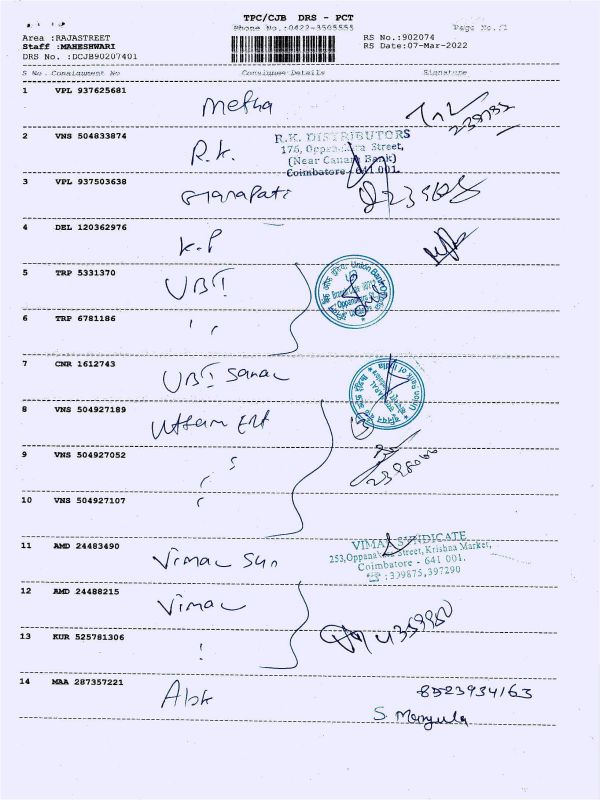 TPC/CJB DRS - PCT
Phone No.:0422-3505555
Page No./1
Area :RAJASTREET
Staff :MAHESHWARI
DRS No. :DCJB90207401
RS No.:902074
RS Date:07-Mar-2022
S No. Consignment No Consignee Details Signature
1 VPL 937625681 Metha
2 VNS 504833874 R.K.
R.K. DISTRIBUTORS
176, Oppanakara Street,
(Near Canara Bank)
Coimbatore - 641 001.
3 VPL 937503638 Ganapati
4 DEL 120362976 K.P
5 TRP 5331370 UBI
Union Bank Of India
6 TRP 6781186 "
7 CNR 1612743 UBI
Union Bank of India
8 VNS 504927189 Uttam
9 VNS 504927052 "
10 VNS 504927107 "
11 AMD 24483490 Vimal Sun
VIMAL SYNDICATE
253,Oppanakara Street, Krishna Market,
Coimbatore - 641 001.
☎ :399875,397290
12 AMD 24488215 Vimal
13 KUR 525781306 "
14 MAA 287357221 8523934163
S. Manjula